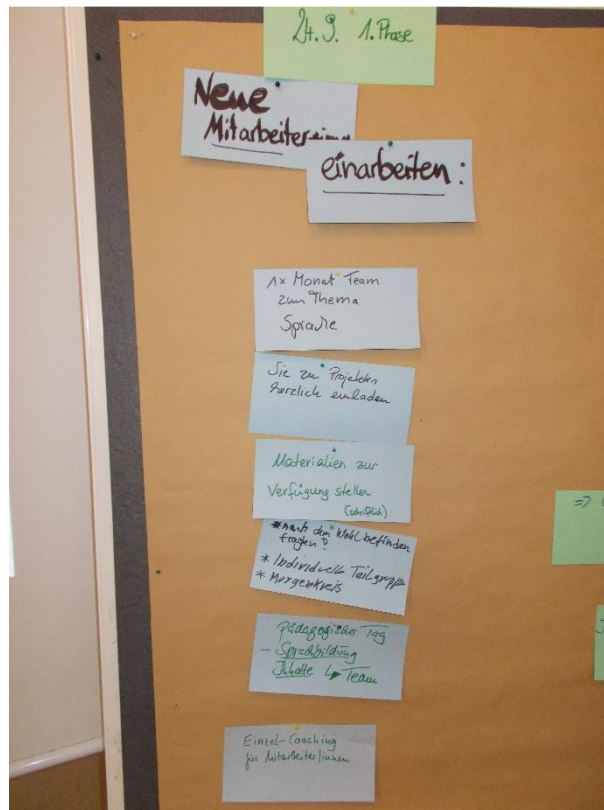 24.9. 1. Phase
Neue
Mitarbeiter
einarbeiten :
1x Monat Team
zum Thema
Sprache
Sie zu Projekten
herzlich einladen
Materialien zur
Verfügung stellen
(schriftlich)
* nach dem Wohlbefinden
fragen?
* Individuelle Teilgruppe
* Morgenkreis
Pädagogischer Tag
- Sprachbildung
Inhalte ↳ Team
Einzel-Coaching
für Mitarbeiter/innen
=>